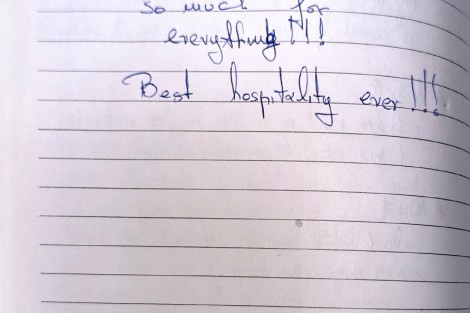 so much for
everything!!!
Best hospitality ever!!!